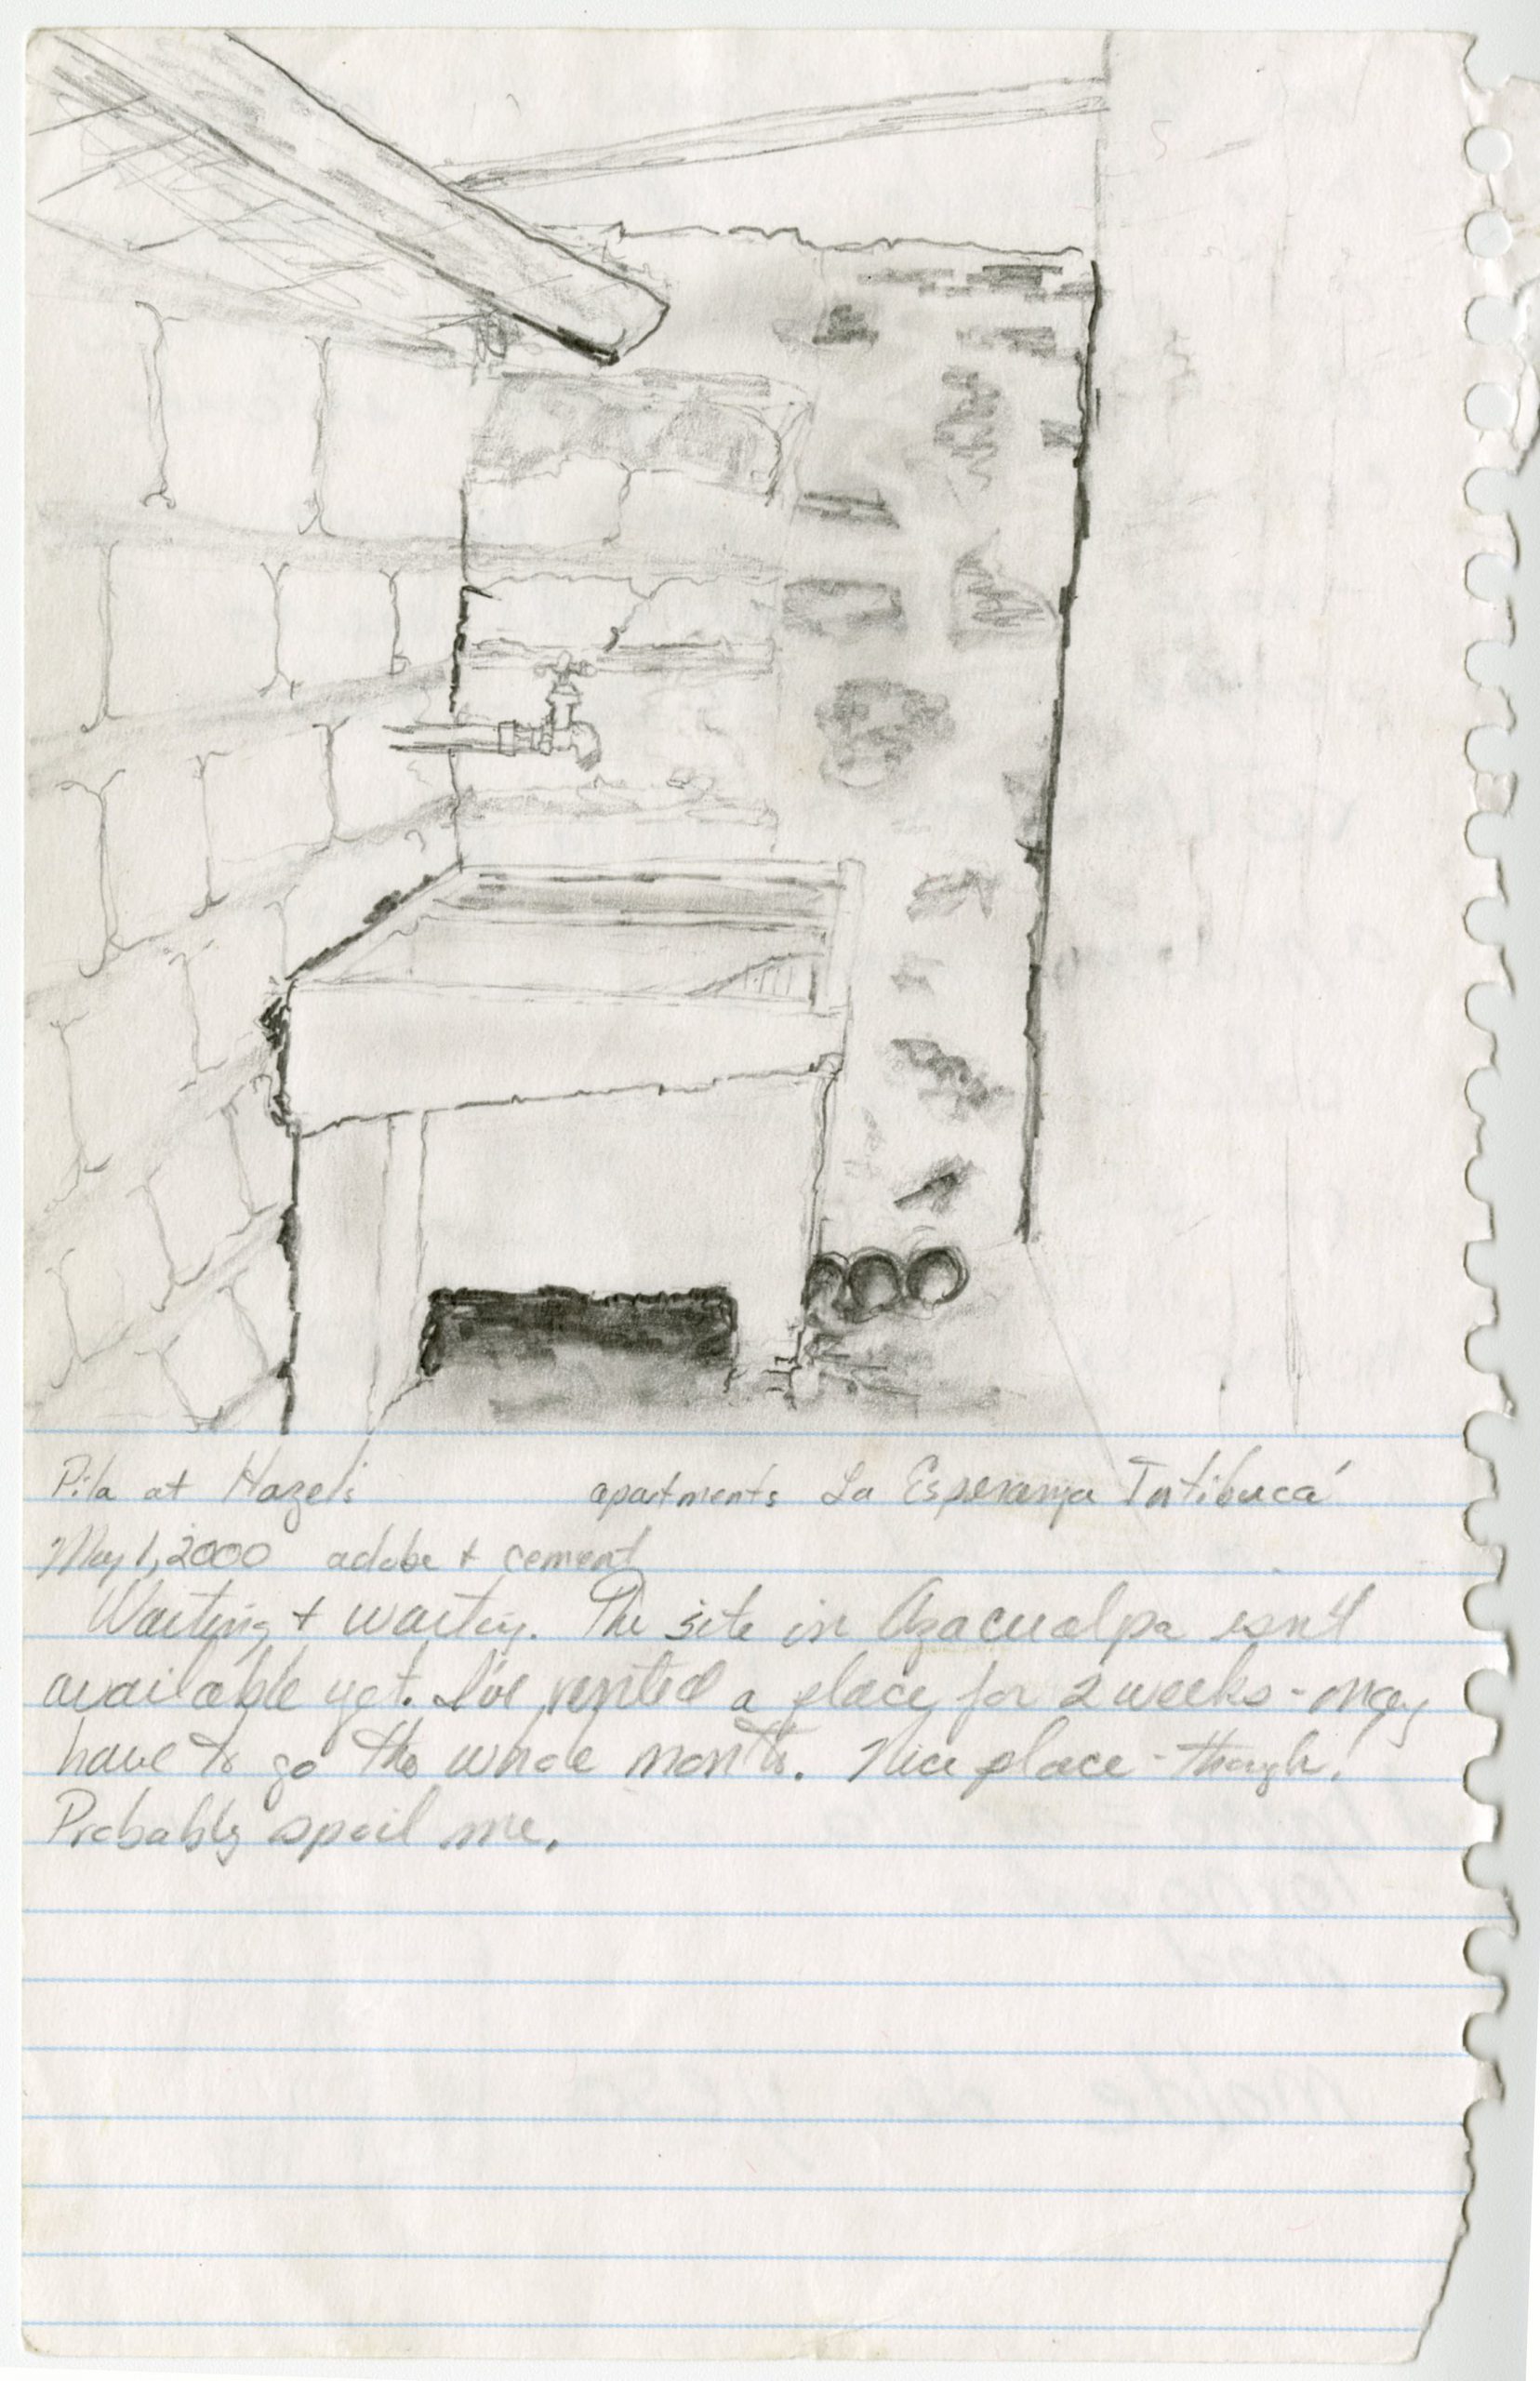 Pila at Hazel's apartments La Esperanza Intibucá
May 1, 2000 adobe + cement
Waiting + waiting. The site in Azacualpa isn't
available yet. I've rented a place for 2 weeks - may
have to go the whole month. Nice place - though.
Probably spoil me.